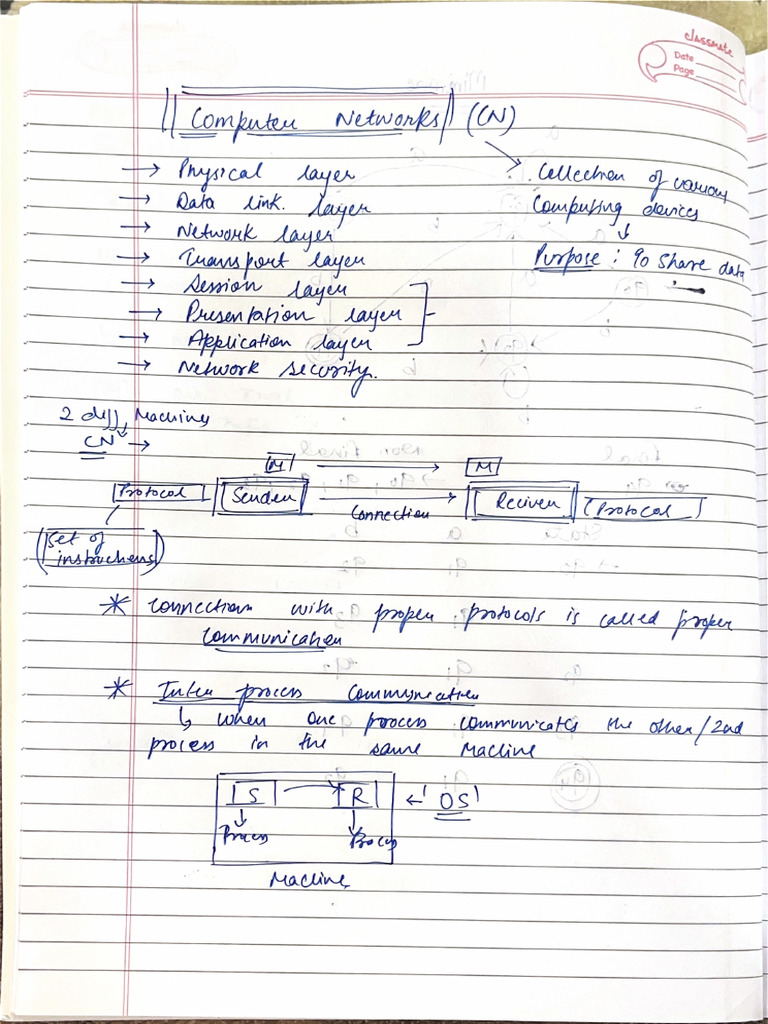 classmate
Date
Page
Computer Networks (CN)
→ Physical layer
→ Data link layer
→ Network layer
→ Transport layer
→ Session layer
→ Presentation layer
→ Application layer
→ Network security.
Collection of various
computing devices
↓
Purpose : To share data
2 diff Machines
CN →
M → M
Protocol Sender → Reciver Protocol
Connection
(Set of
instructions)
* Connection with proper protocols is called proper
communication
* Inter process communication
↳ when one process communicates the other/2nd
process in the same machine
S → R ← 'OS'
↓ ↓
Process Process
Machine